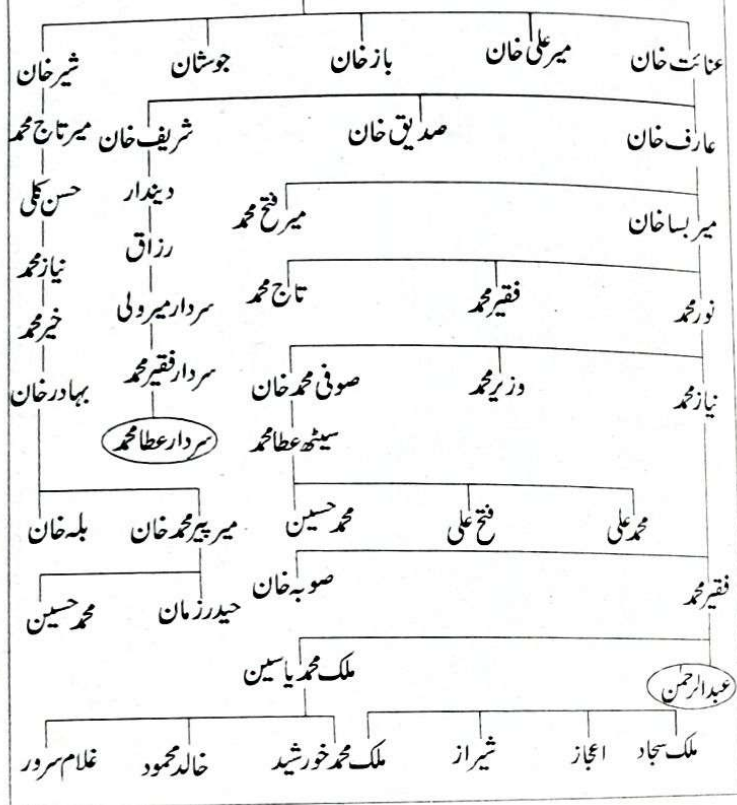 عنائت خان میر علی خان باز خان جوسثان شیر خان
عارف خان صدیق خان شریف خان میر تاج محمد
میر بسا خان میر فتح محمد دیندار حسن کلی
رزاق نیاز محمد
نور محمد فقیر محمد تاج محمد سردار میر ولی خیر محمد
نیاز محمد وزیر محمد صوفی محمد خان سردار فقیر محمد بہادر خان
سیٹھ عطا محمد سردار عطا محمد
محمد علی فتح علی محمد حسین میر پیر محمد خان بلہ خان
فقیر محمد صوبہ خان حیدر زمان محمد حسین
عبدالرحمن ملک محمد یاسین
ملک سجاد اعجاز شیراز ملک محمد خورشید خالد محمود غلام سرور